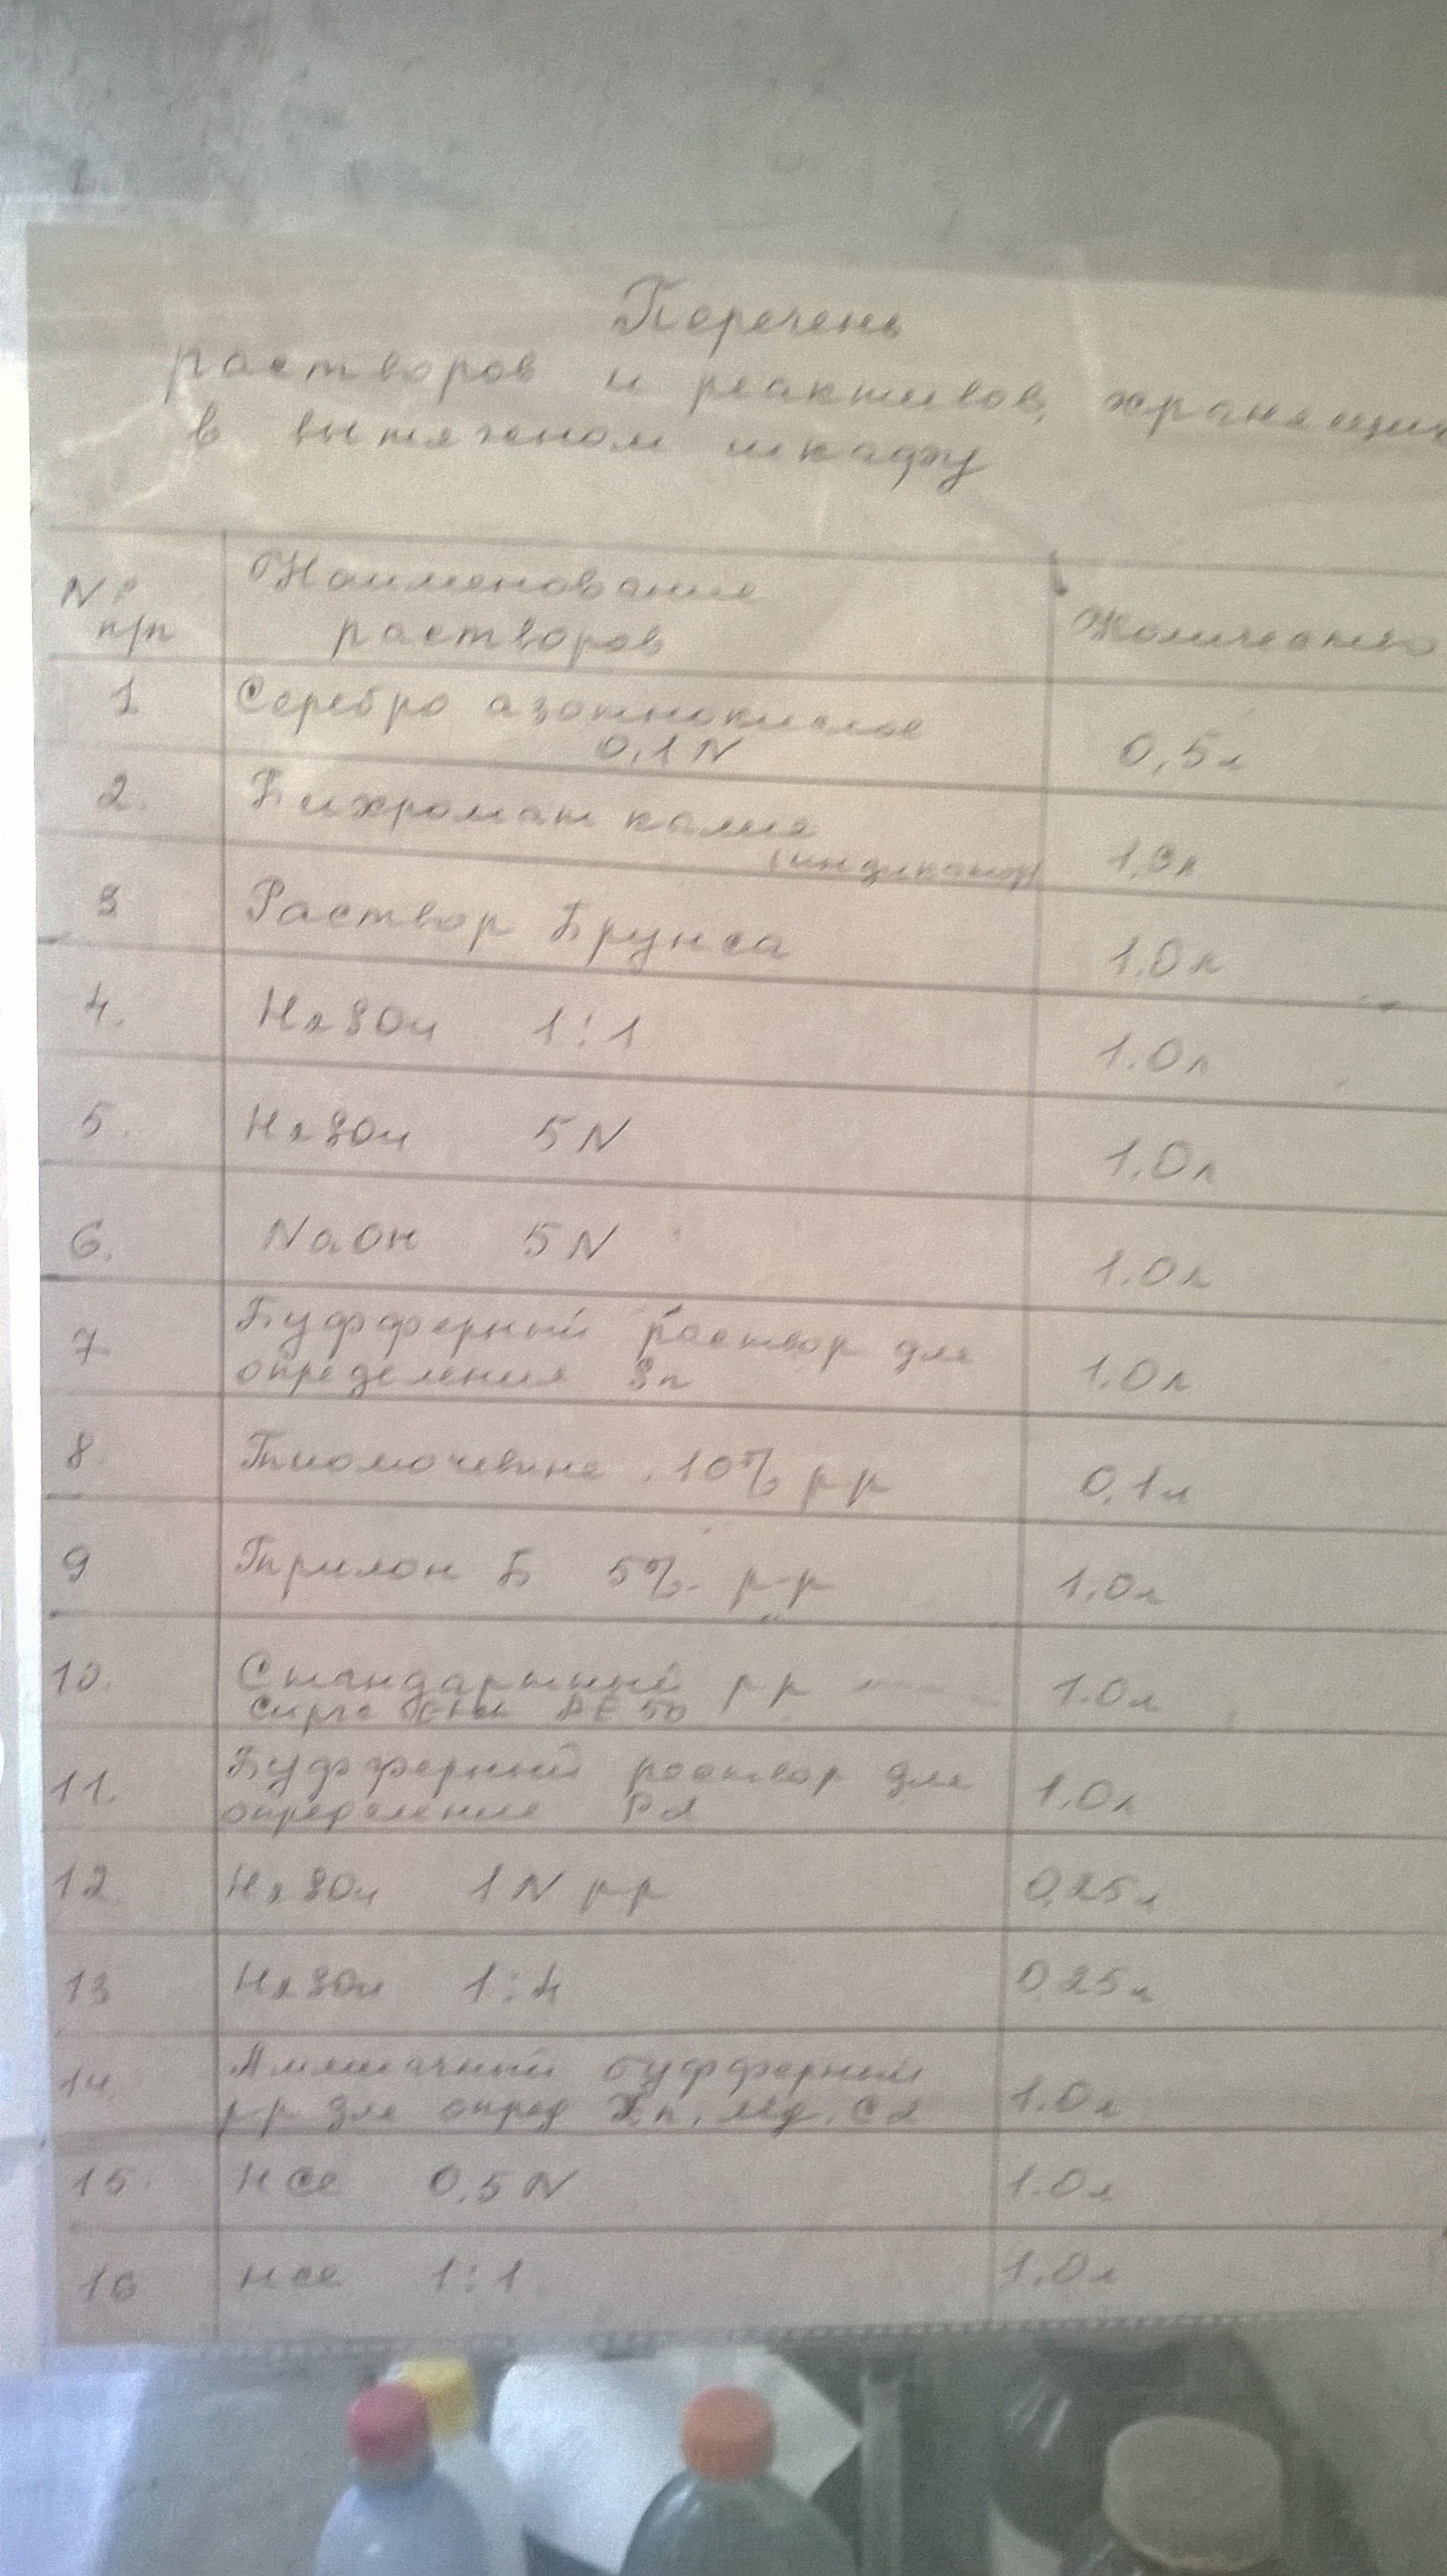 Перечень
растворов и реактивов, хранящих
в вытяжном шкафу
№ п/п Наименование растворов Количество
1 Серебро азотнокислое 0,5л
0,1N
2. Бихромат калия
(индикатор) 1,0л
3 Раствор Брунса 1.0л
4. H2SO4 1:1 1.0л
5. H2SO4 5N 1.0л
6. NaOH 5N 1.0л
7. Буфферный раствор для
определения Zn 1.0л
8. Тиомочевина 10% р-р 0,1л
9 Трилон Б 5% р-р 1.0л
10. Стандартный р-р 1.0л
АЕ 50
11. Буфферный раствор для
определение 1.0л
12. H2SO4 1N р-р 0,25л
13 H2SO4 1:4 0,25л
14. Аммиачный буфферный
р-р для опред Zn, Mg, Cd 1.0л
15. HCl 0,5N 1.0л
16 HCl 1:1 1.0л